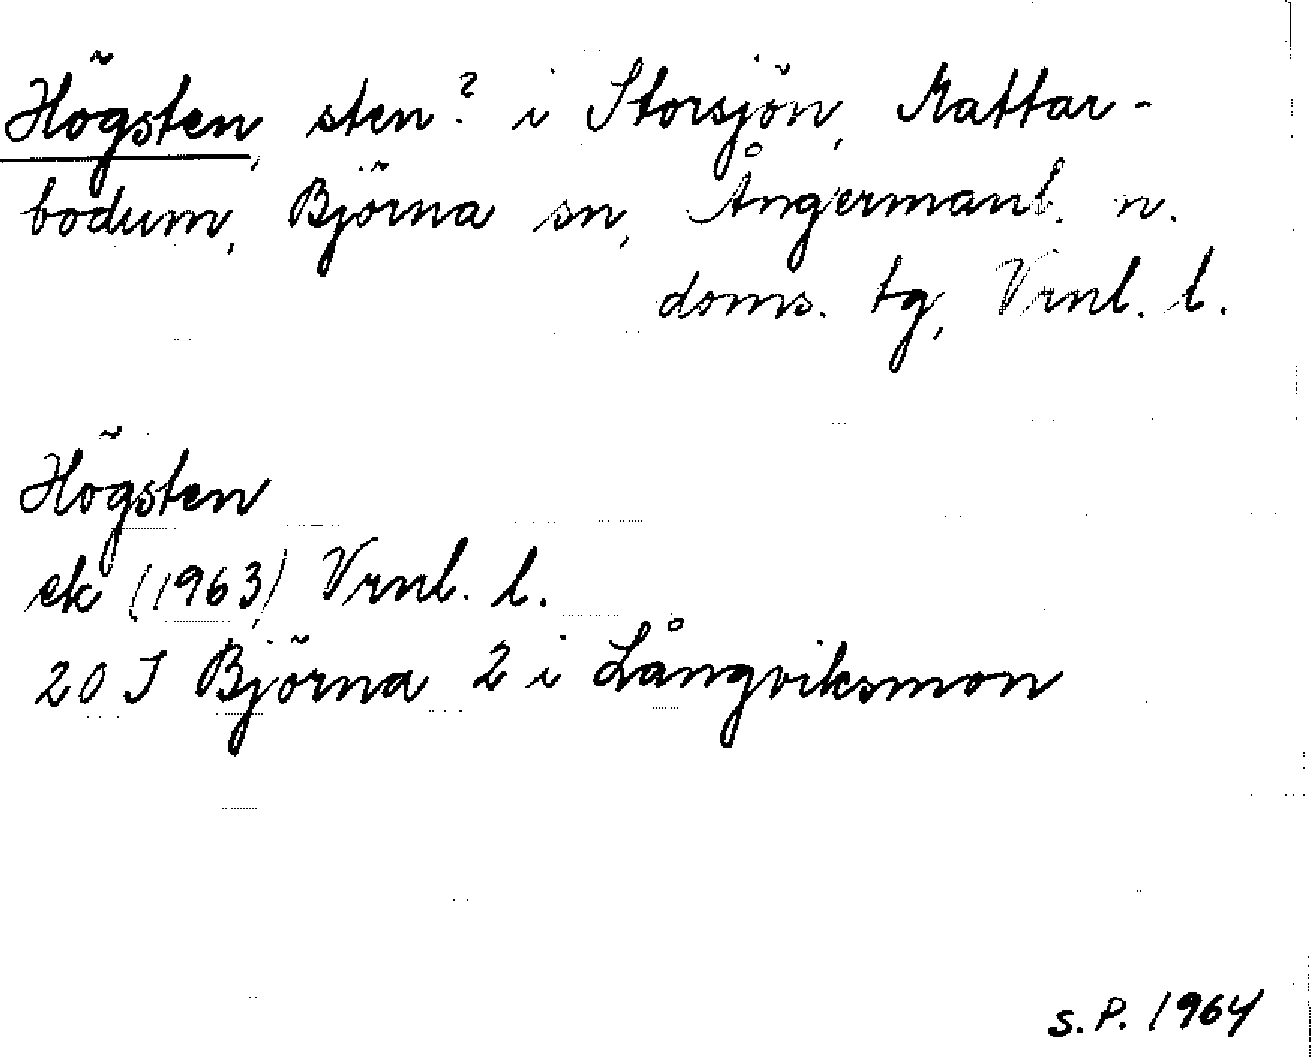 Högsten, sten? i Storsjön, Mattar-
bodum, Björna sn, Ångermanl. n.
doms. tg, Vrnl. l.
Högsten
ek (1963) Vrnl. l.
20 I Björna 2 i Långviksmon
S.P. 1964